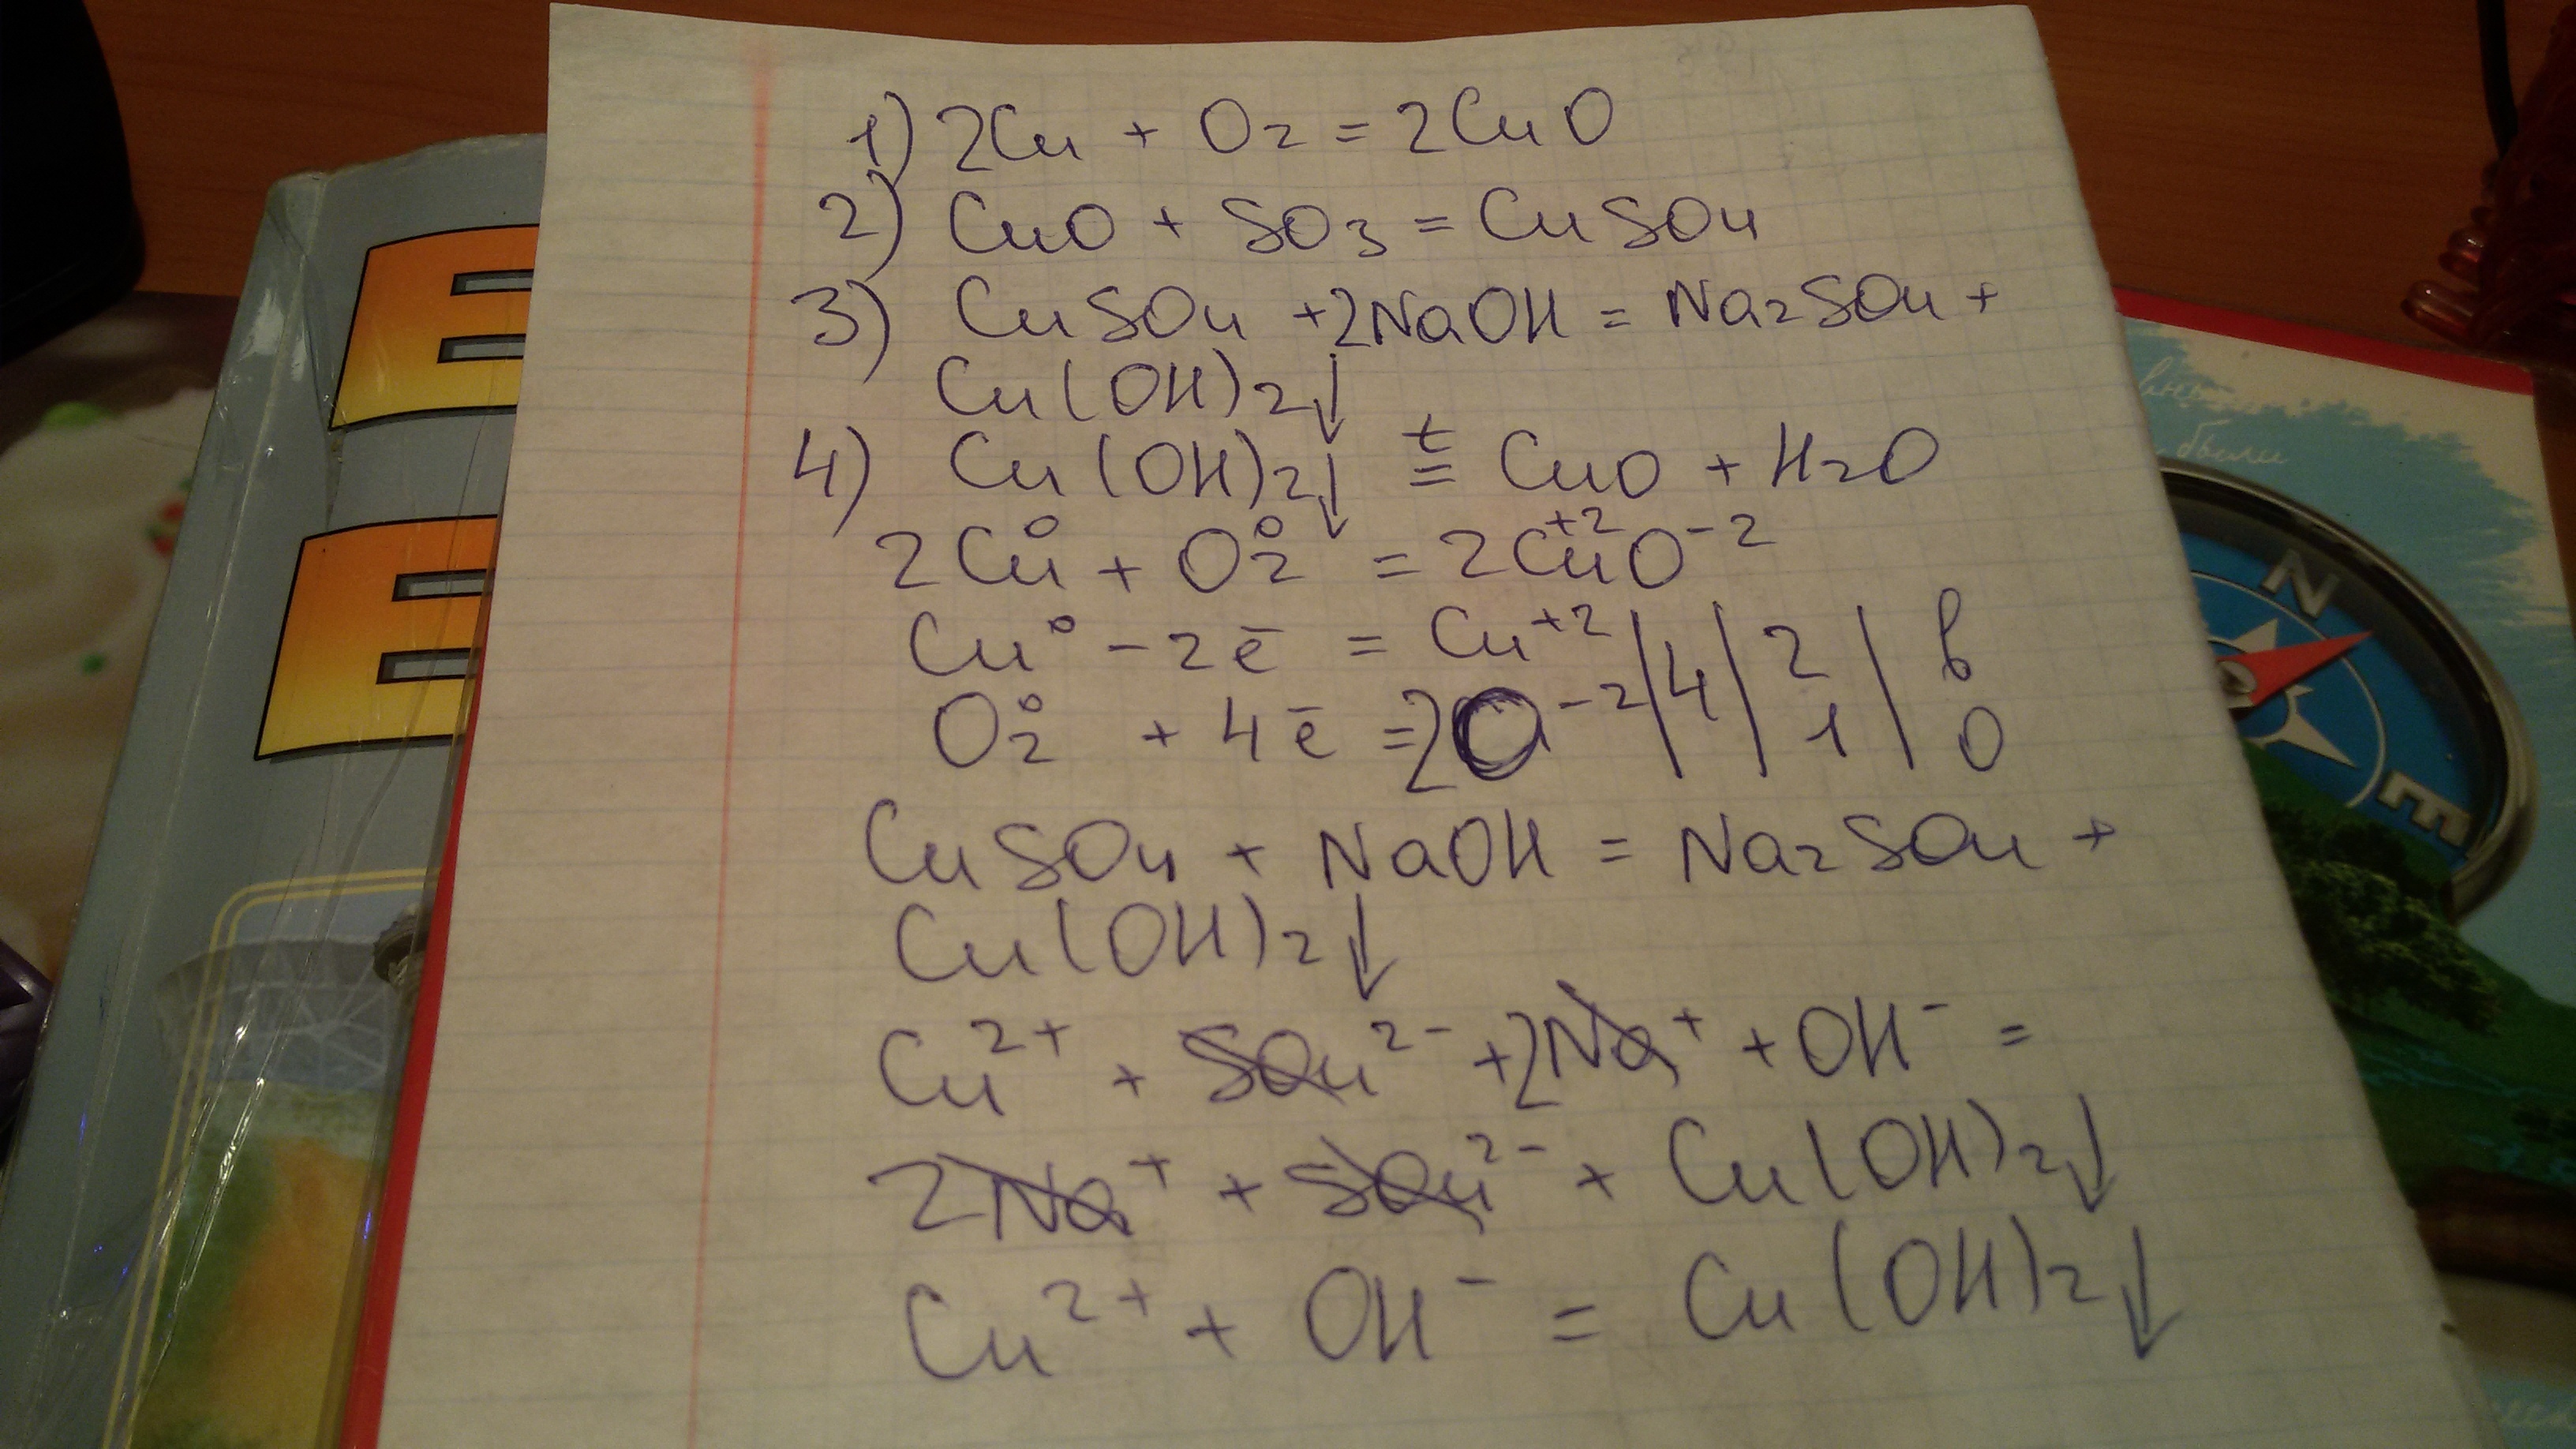 1) 2Cu + O2 = 2CuO
2) CuO + SO3 = CuSO4
3) CuSO4 + 2NaOH = Na2SO4 +
Cu(OH)2↓
4) Cu(OH)2↓ =t CuO + H2O
2Cu⁰ + O2⁰ = 2Cu⁺²O⁻²
Cu⁰ - 2ē = Cu⁺² | 4 | 2 | в
O2⁰ + 4ē = 2O⁻² | | 1 | о
CuSO4 + NaOH = Na2SO4 +
Cu(OH)2↓
Cu²⁺ + SO4²⁻ + 2Na⁺ + OH⁻ =
2Na⁺ + SO4²⁻ + Cu(OH)2↓
Cu²⁺ + OH⁻ = Cu(OH)2↓
E
E
были
N
E